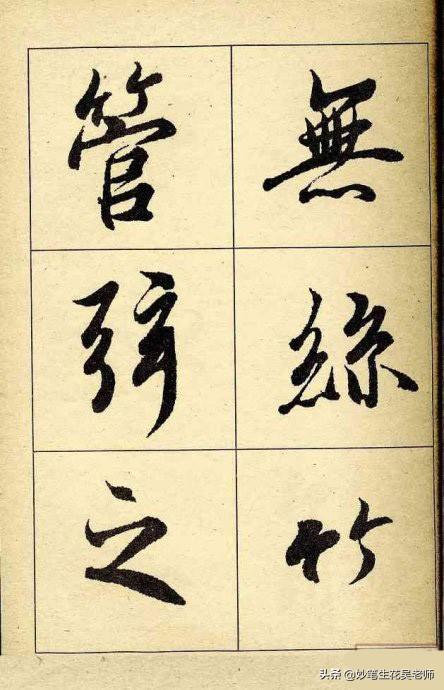 無絲竹
管弦之
头条 @妙笔生花吴老师